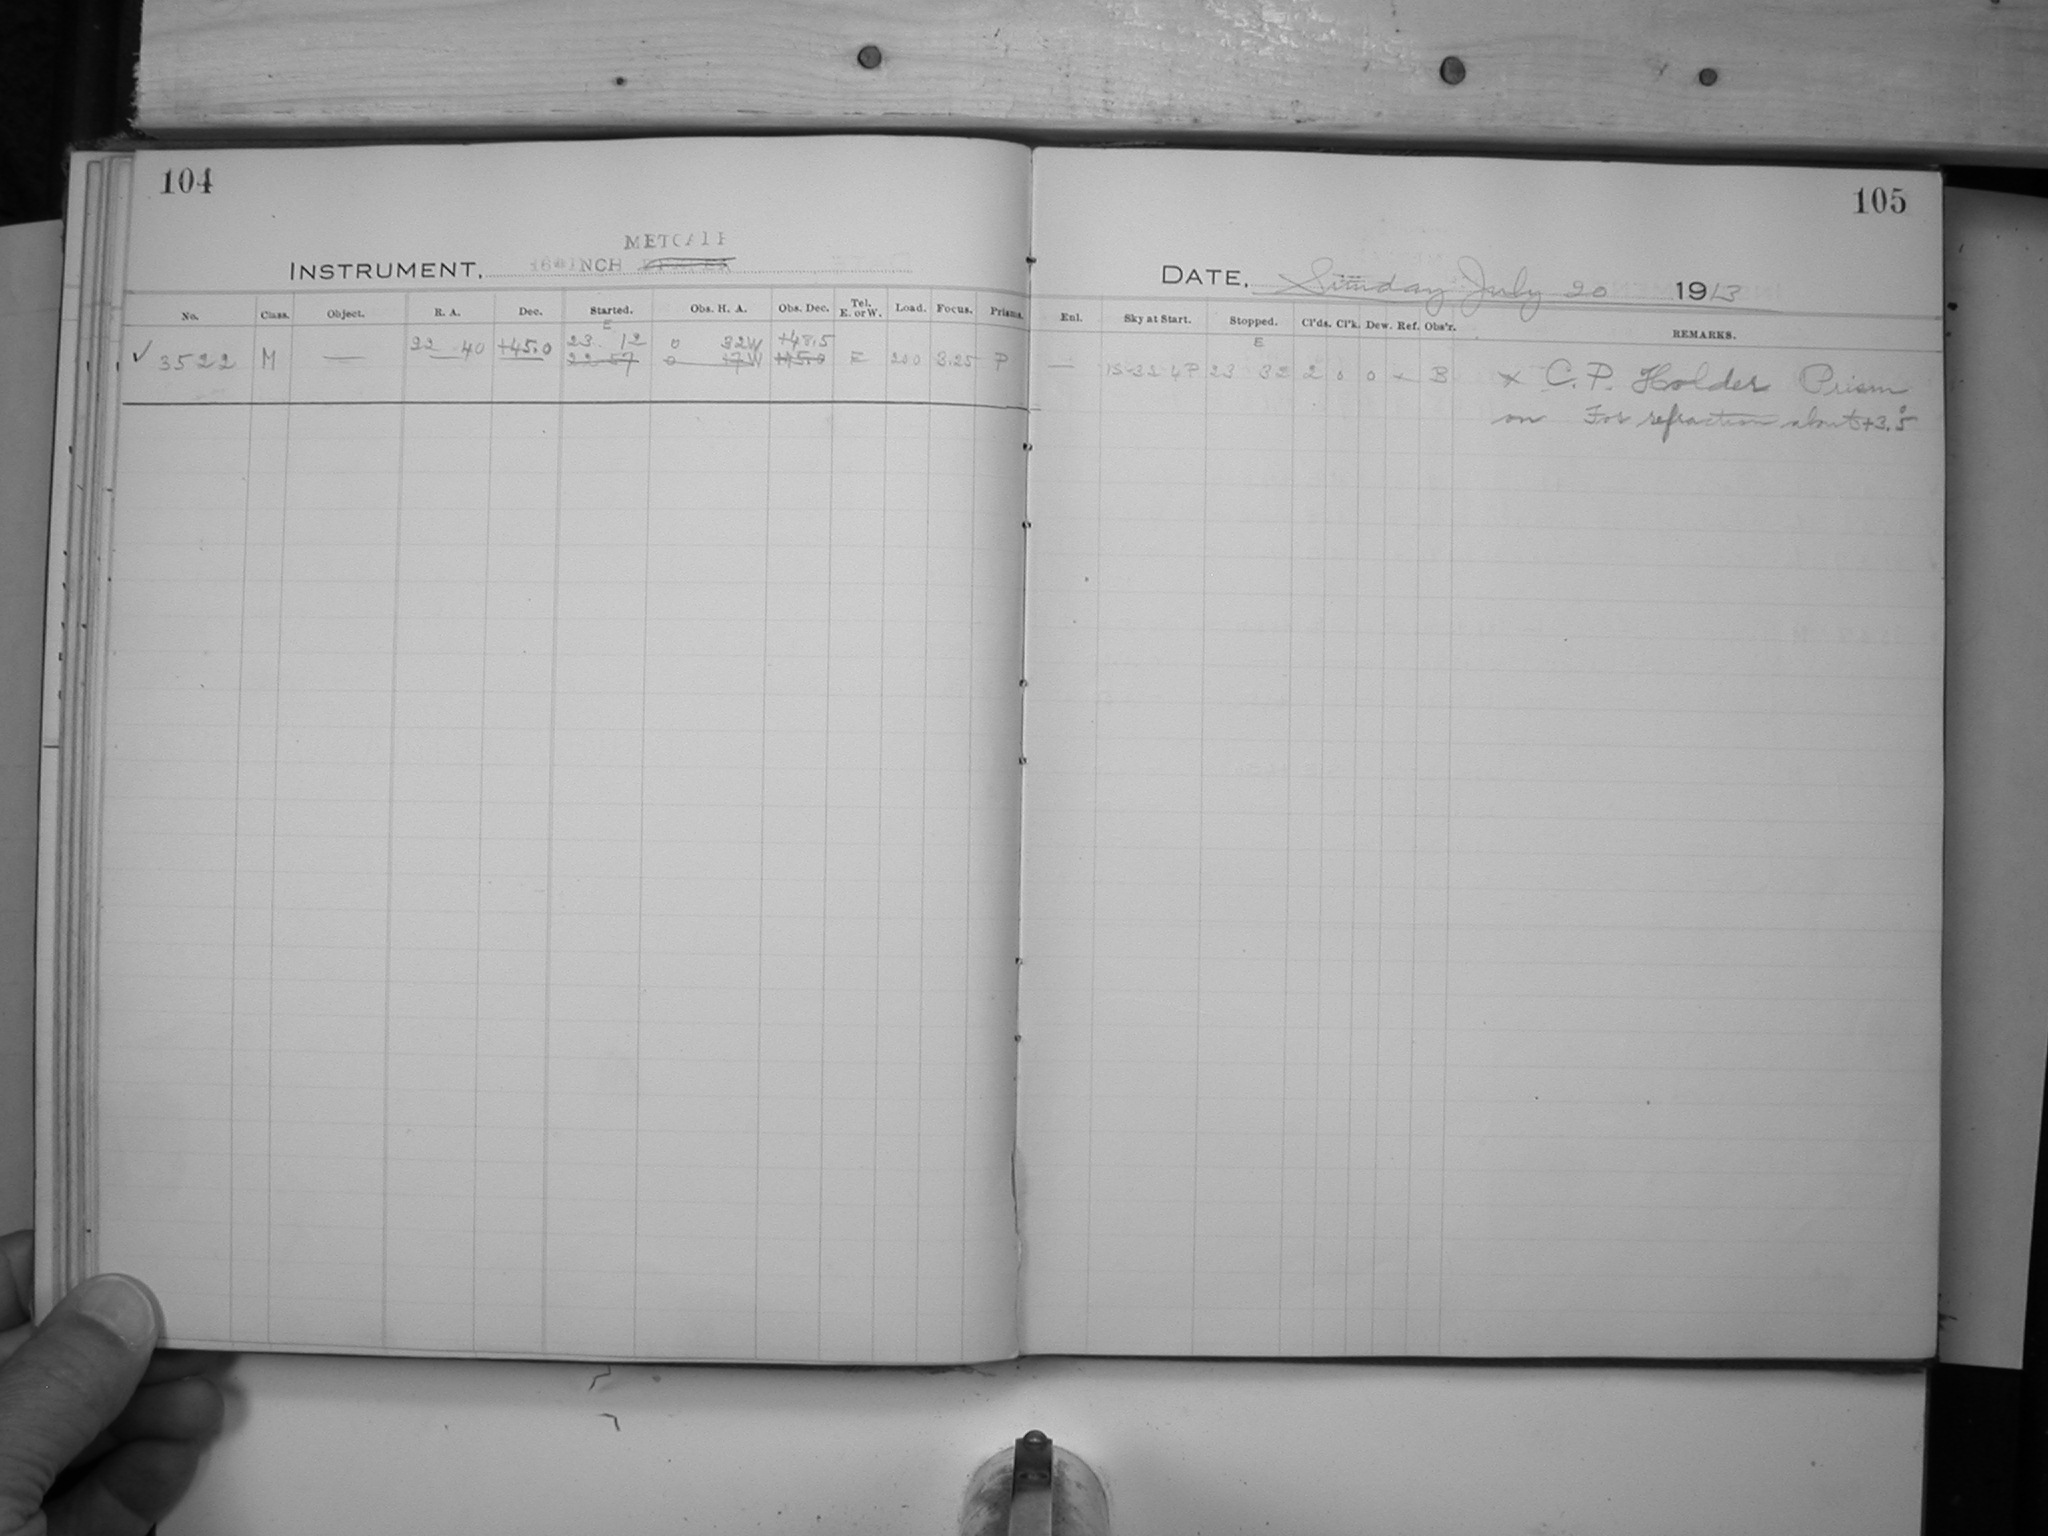 104
METCALF
INSTRUMENT, 16-INCH
No. Class. Object. R. A. Dec. Started. Obs. H. A. Obs. Dec. Tel. E. or W. Load. Focus. Prisms.
E
22 40 +45.0 23 12 0 32W +48.5
✓ 3522 M — 22 57 0 17W +45.0 E 200 3.25 P
105
DATE, Sunday July 20 1913
Enl. Sky at Start. Stopped. Cl'ds. Cl'k. Dew. Ref. Obs'r. REMARKS.
E
— 15-32 4P 23 32 2 0 0 – B x C. P. Holder Prism
on For refraction about +3.°5